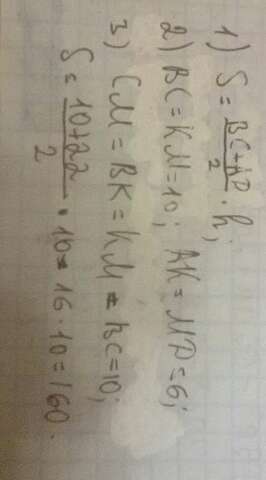 1) S = BC+AD/2 · h;
2) BC=KM=10; AK=MD=6;
3) CM=BK=KM=BC=10;
S = 10+22/2 · 10=16·10=160.